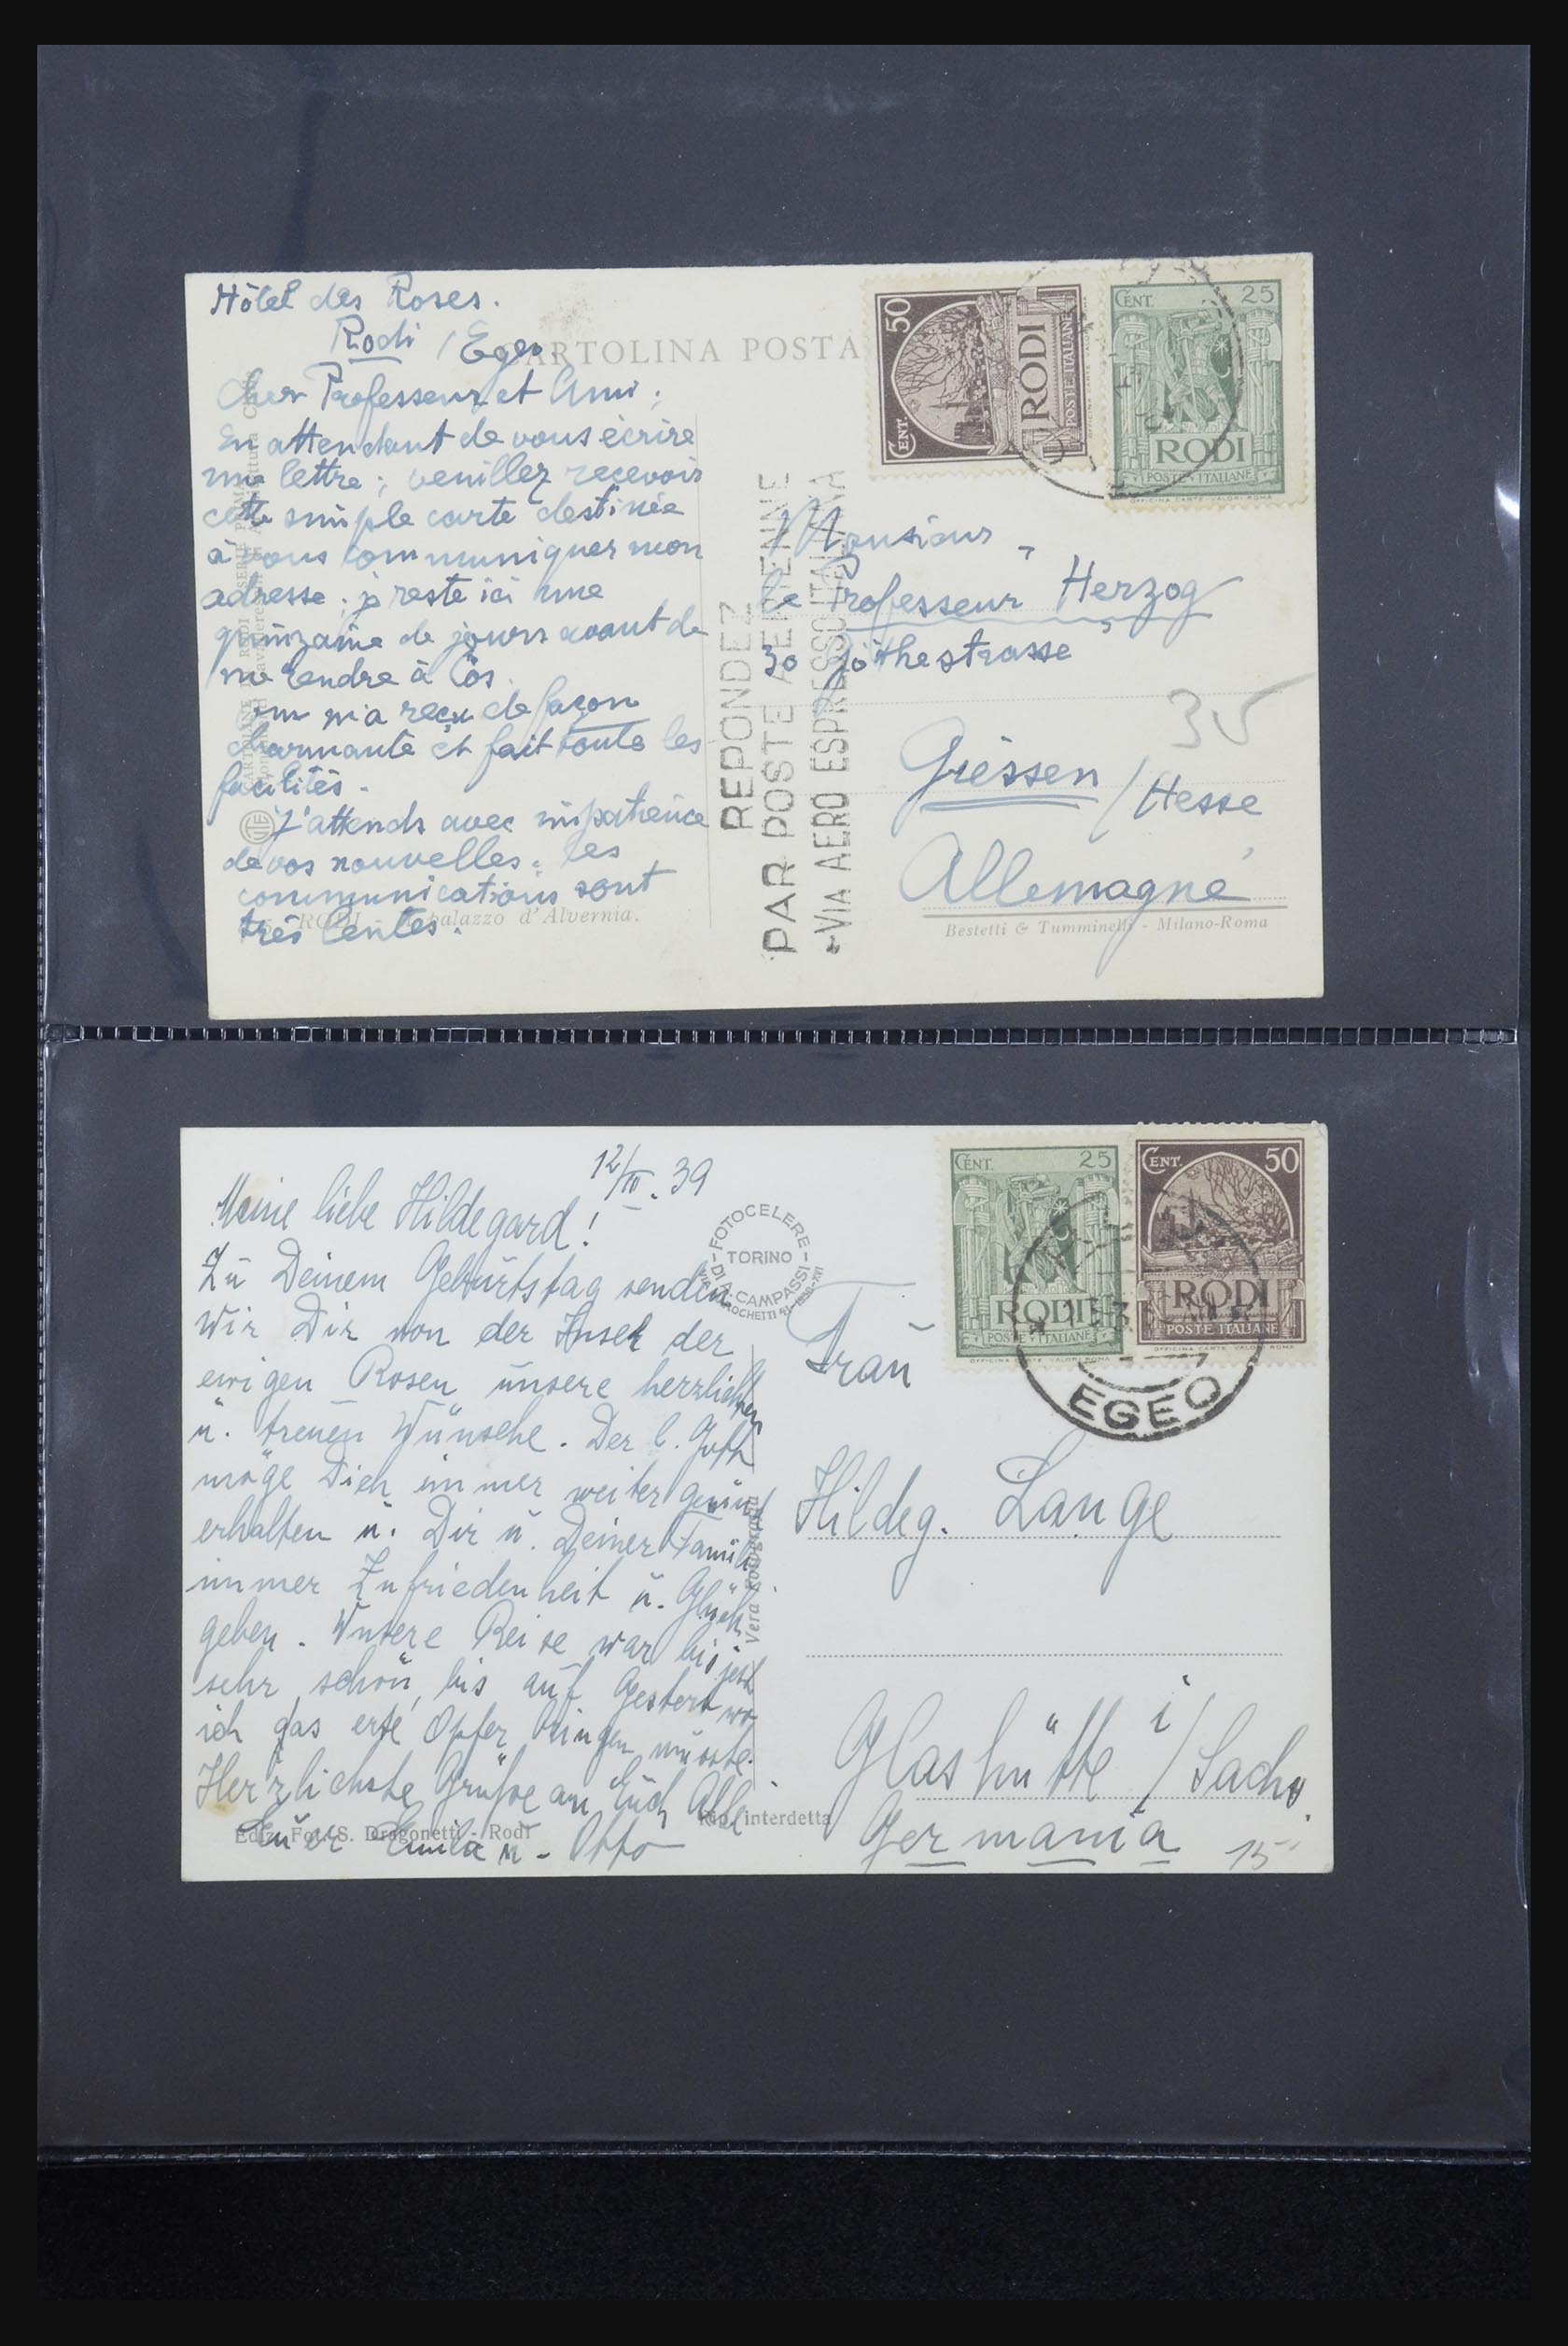 Hôtel des Roses.
Rodi / Egeo.
CARTOLINA POSTA
Cher Professeur et Ami;
En attendant de vous écrire
une lettre; veuillez recevoir
cette simple carte destinée
à vous communiquer mon
adresse; je reste ici une
quinzaine de jours avant de
me rendre à Cos.
on m'a reçu de façon
charmante et fait toute les
facilités.
J'attends avec impatience
de vos nouvelles. les
communications sont
très lentes.
RODI - palazzo d'Alvernia.
CENT. 50
RODI
POSTE ITALIANE
CENT. 25
RODI
POSTE ITALIANE
OFFICINA CARTE VALORI ROMA
REPONDEZ
PAR POSTE AERIENNE
VIA AERO ESPRESSO ITALIANA
Monsieur
le Professeur Herzog
30 Göthestrasse
35
Giessen / Hesse
Allemagne
Bestetti & Tumminelli - Milano-Roma
12/IV. 39
Meine liebe Hildegard!
Zu Deinem Geburtstag senden
wir Dir von der Insel der
ewigen Rosen unsere herzlichsten
u. treuen Wünsche. Der l. Gott
möge Dich immer weiter gesund
erhalten u. Dir u. Deiner Famili
immer Zufriedenheit u. Glück
geben. Unsere Reise war bis jetzt
sehr schön, bis auf Gestern wo
ich das erste Opfer bringen musste.
Herzlichste Grüße an Euch Alle
Euer Emila u. Otto
Ediz. Fot. S. Dragonetti - Rodi
Rip. interdetta
Vera Fotografia
FOTOCELERE
TORINO
DI A. CAMPASSI
CENT. 25
RODI
POSTE ITALIANE
OFFICINA CARTE VALORI ROMA
CENT. 50
RODI
POSTE ITALIANE
OFFICINA CARTE VALORI ROMA
EGEO
Frau
Hildeg. Lange
Glashütte i/Sachs.
Germania
15